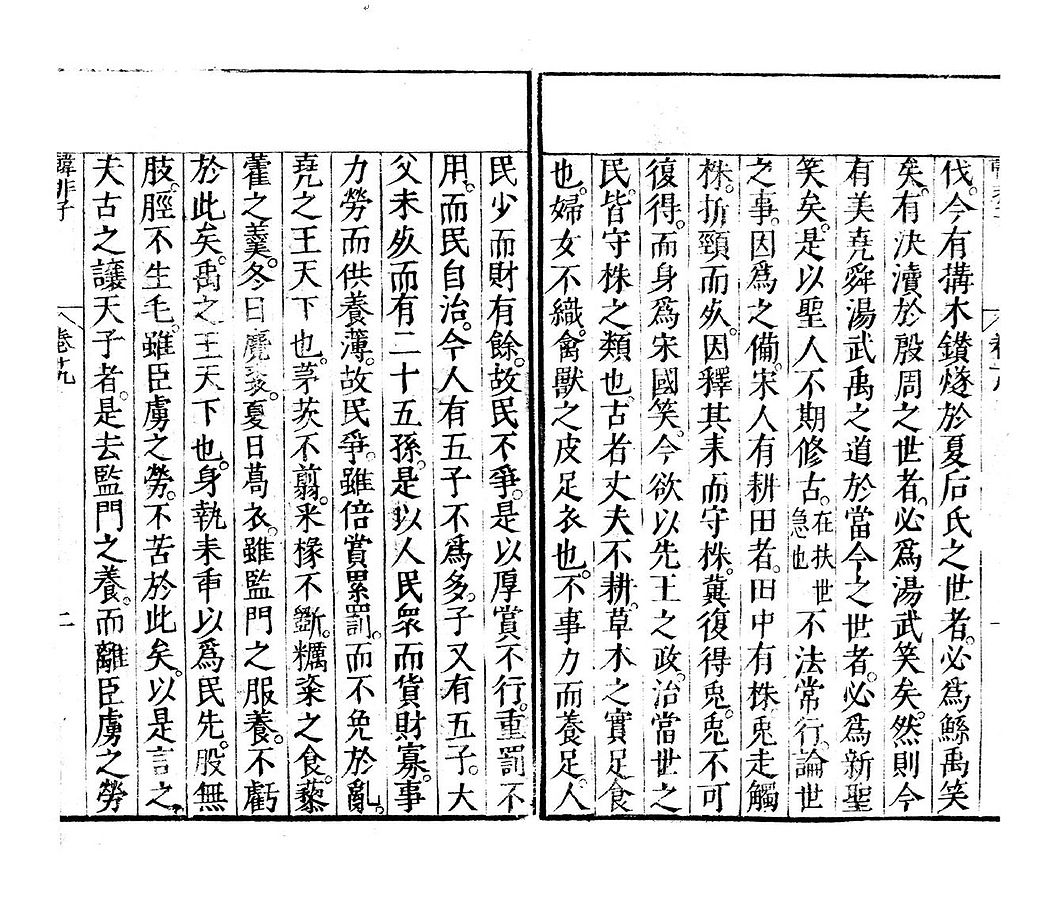 伐。今有搆木鑽燧於夏后氏之世者。必爲鯀禹笑
矣。有決瀆於殷周之世者。必爲湯武笑矣。然則今
有美堯舜湯武禹之道於當今之世者。必爲新聖
笑矣。是以聖人不期修古。在扶世急也不法常行。論世
之事。因爲之備。宋人有耕田者。田中有株兎走觸
株。折頸而死。因釋其耒而守株。冀復得兎。兎不可
復得。而身爲宋國笑。今欲以先王之政。治當世之
民。皆守株之類也。古者丈夫不耕。草木之實足食
也。婦女不織。禽獸之皮足衣也。不事力而養足。人
民少而財有餘。故民不爭。是以厚賞不行。重罰不
用。而民自治。今人有五子不爲多。子又有五子。大
父未死而有二十五孫。是以人民衆而貨財寡。事
力勞而供養薄。故民爭。雖倍賞累罰。而不免於亂。
堯之王天下也。茅茨不翦。采椽不斲。糲粢之食。藜
藿之羹。冬日麑裘。夏日葛衣。雖監門之服養。不虧
於此矣。禹之王天下也。身執耒臿以爲民先。股無
胈。脛不生毛。雖臣虜之勞。不苦於此矣。以是言之
夫古之讓天子者。是去監門之養。而離臣虜之勞
韓非子 卷十九 二